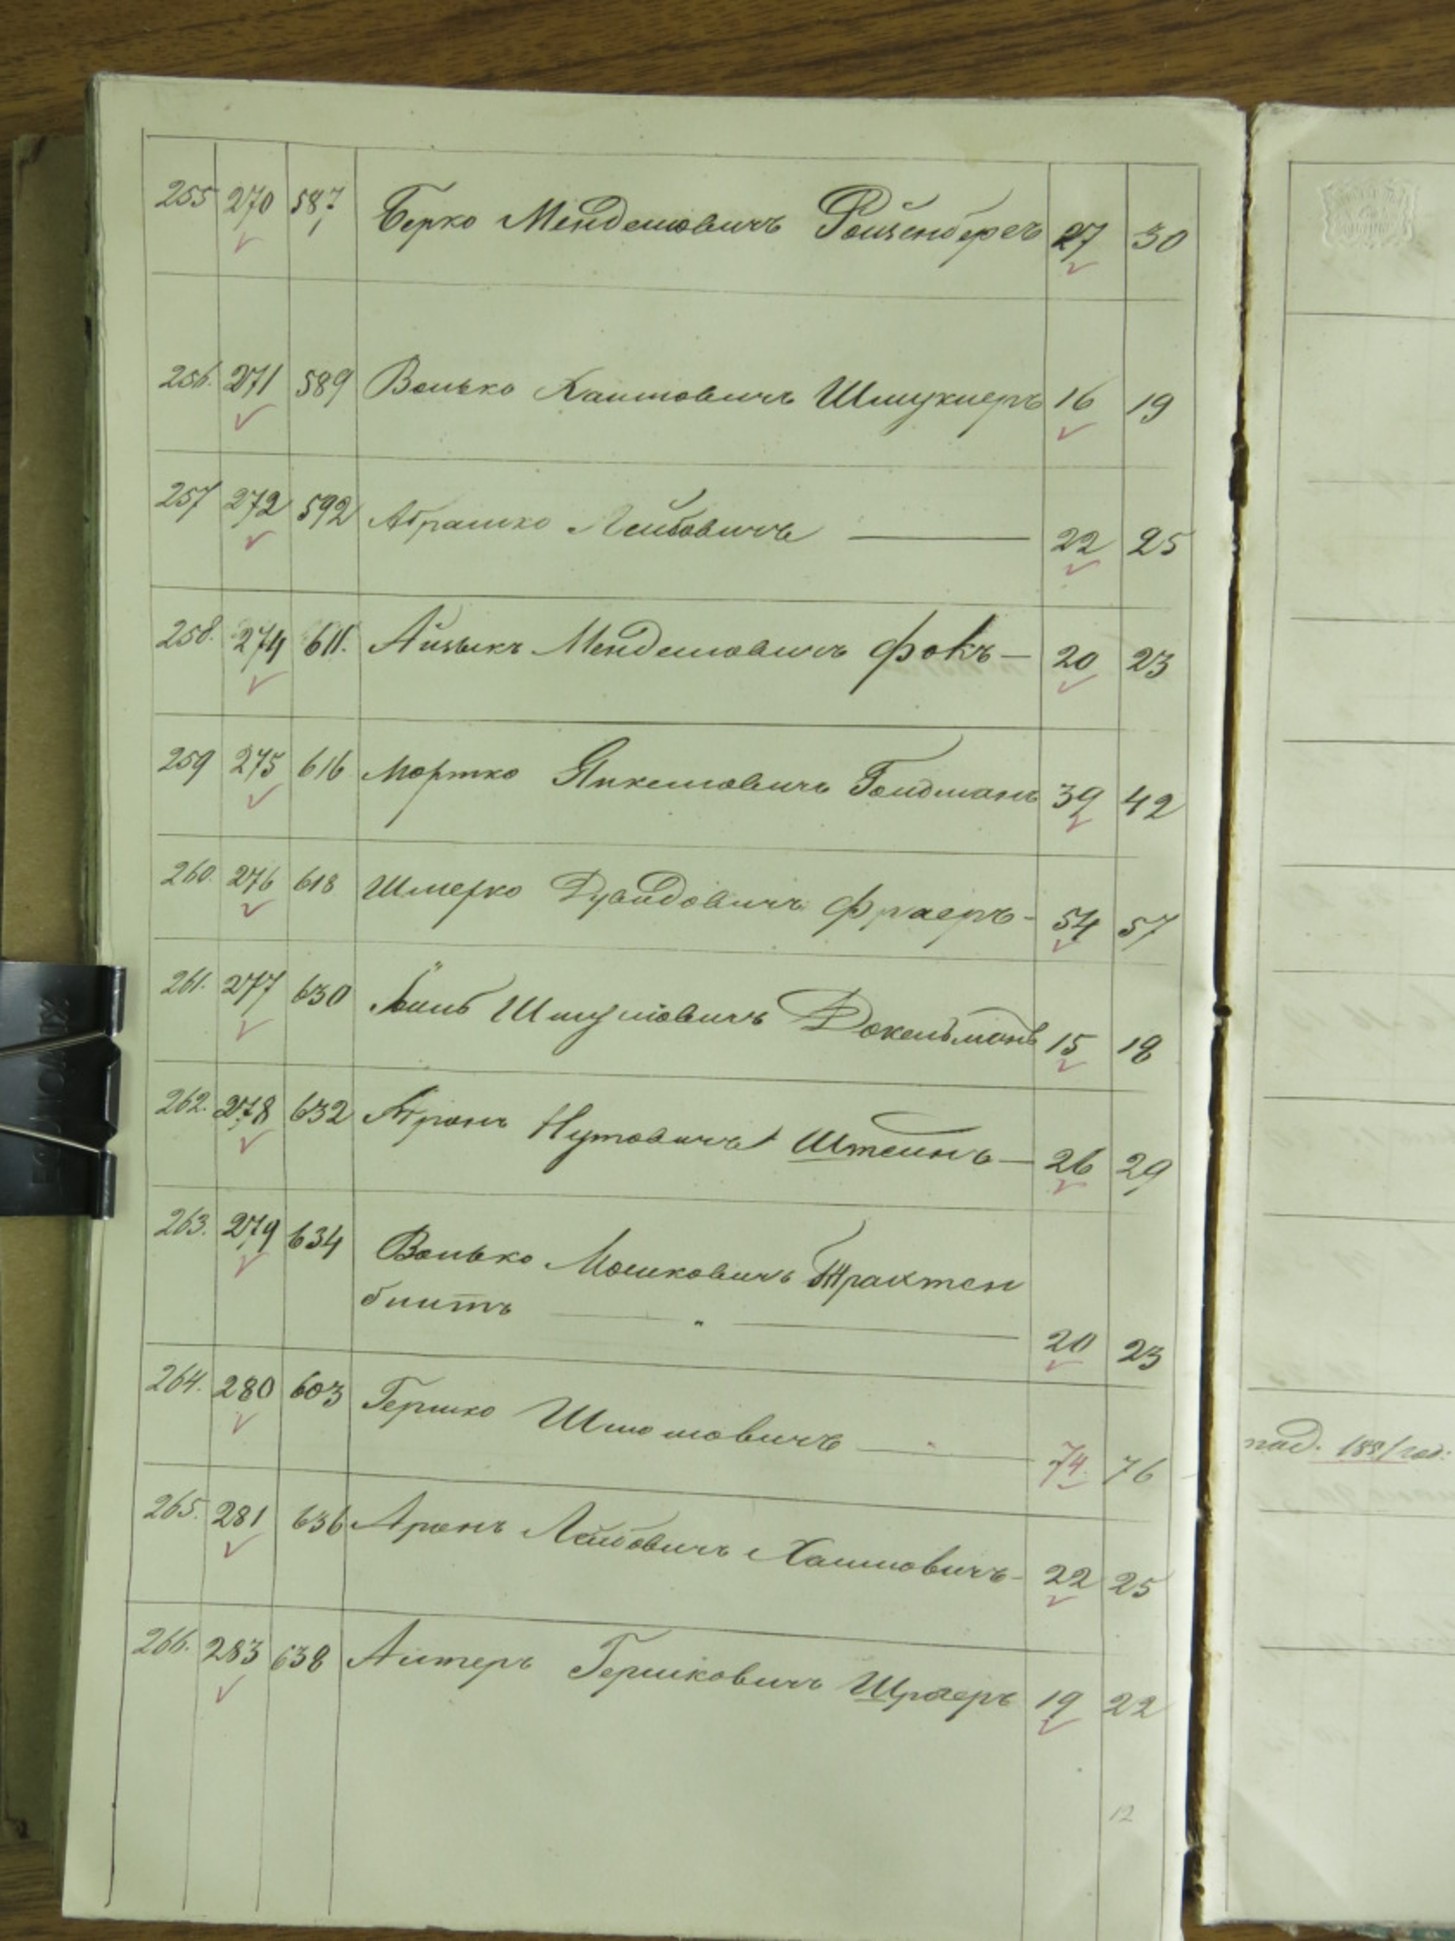 255 270 587 Берко Менделовичъ Ройзенбергъ 27 30
256. 271 589 Волько Хаимовичъ Шмуклеръ 16 19
257 272 592 Абрамко Лейбовичъ — 22 25
258. 274 611. Айзыкъ Менделовичъ Фокъ — 20 23
259 275 616 Мортко Янкелевичъ Голдманъ 39 42
260. 276 618 Шмерко Дувидовичъ Фраеръ - 54 57
261. 277 630 Шмулiовичъ 15 18
262. 278 632 Аронъ Нутовичъ Штейнъ — 26 29
263. 279 634 Волько Мошковичъ Трахтен
блитъ — " — 20 23
264. 280 603 Гершко Шлiомовичъ — 74. 76
265. 281 636 Аронъ Лейбовичъ Хаимовичъ - 22 25
266. 283 638 Алтеръ Гершковичъ Шраеръ 19 22
12